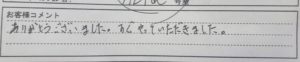 お客様コメント
ありがとうございました。 やっていただきました。